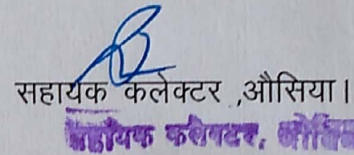 सहायक कलेक्टर ,औसिया।
सहायक कलेक्टर, ओसि